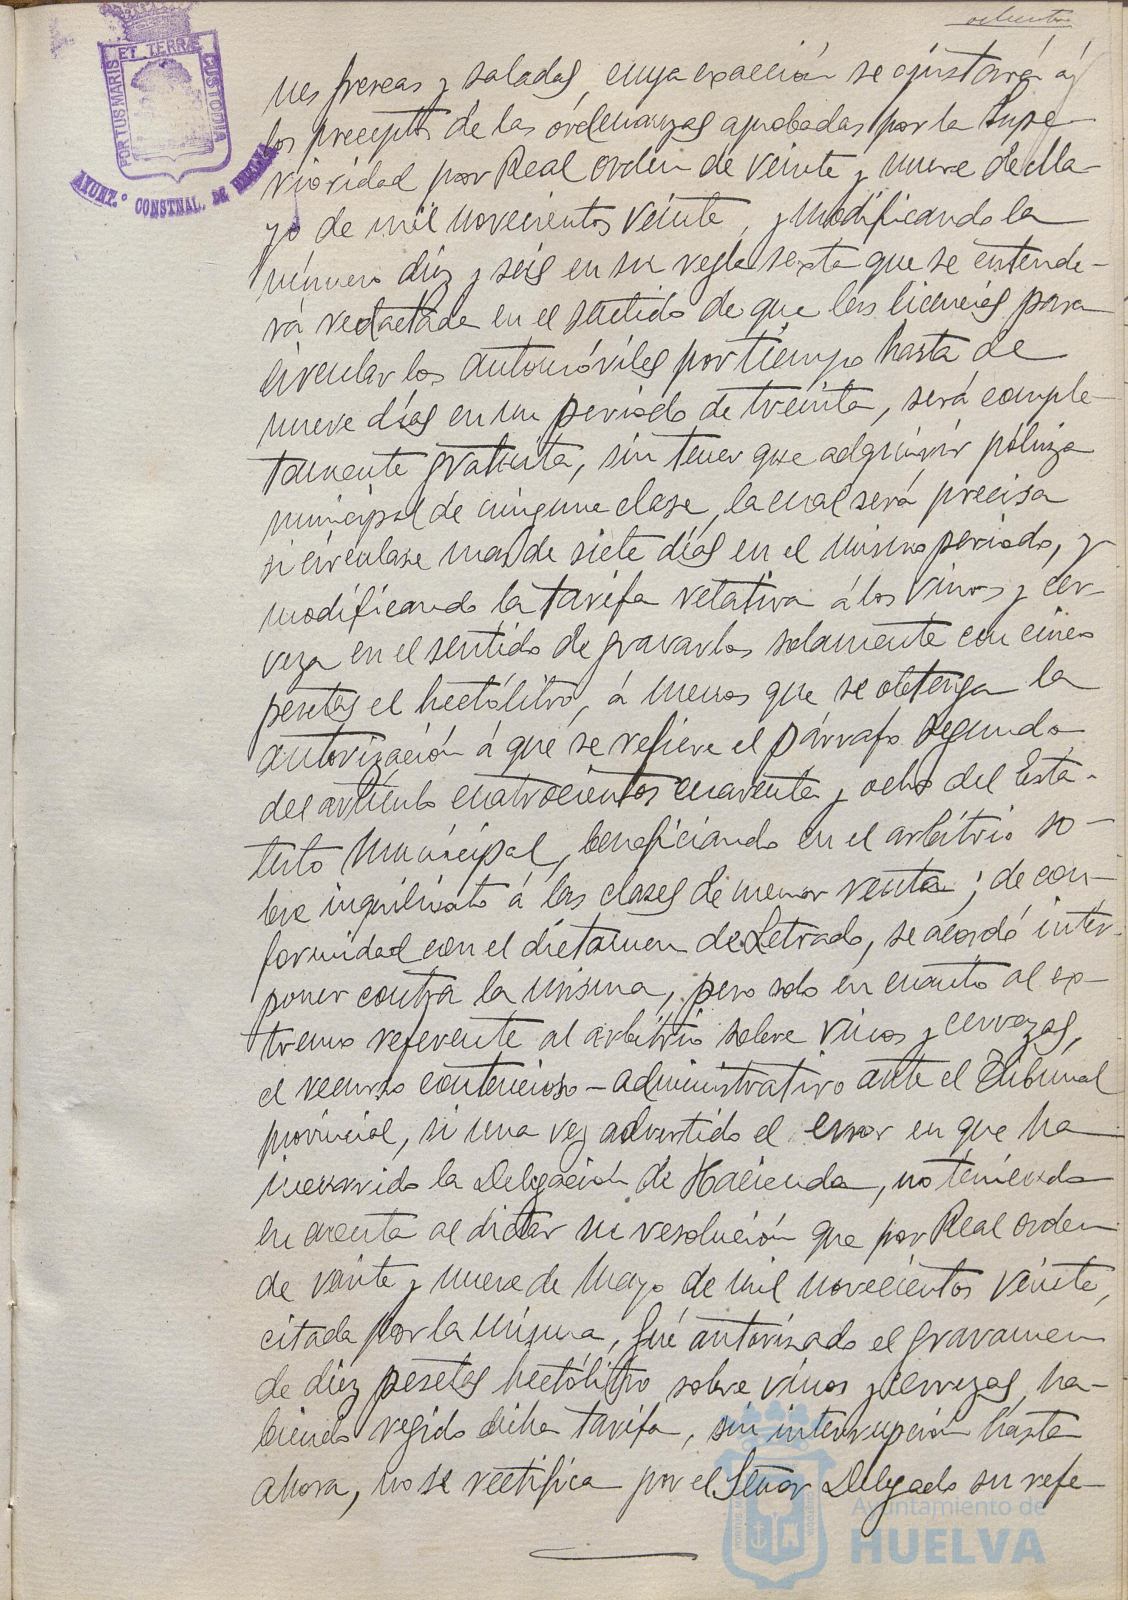 ochenta
PORTUS MARIS ET TERRÆ CUSTODIA
AYUNT.º CONSTNAL. DE HUELVA
nes frescas y saladas, cuya exacción se ajustará á
los preceptos de las órdenanzas aprobadas por la Supe-
rioridad por Real orden de veinte y nueve de Ma-
yo de mil novecientos veinte, y modificando la
número diez y seis en su regla sexta que se entende-
rá redactada en el sentido de que las licencias para
circular los automóviles por tiempo hasta de
nueve días en un periodo de treinta, será comple-
tamente gratuita, sin tener que adquirir póliza
municipal de ninguna clase, la cual será precisa
si circulase mas de siete días en el mismo periodo, y
modificando la tarifa relativa á los vinos y cer-
veza en el sentido de gravarlos solamente con cinco
pesetas el hectólitro, á menos que se obtenga la
autorización á que se refiere el párrafo segundo
del artículo cuatrocientos cuarenta y ocho del Esta-
tuto Municipal, beneficiando en el arbitrio so-
bre inquilinato á las clases de menor renta; de con-
formidad con el dictamen de Letrado, se acordó inter-
poner contra la misma, pero solo en cuanto al ex-
tremo referente al arbitrio sobre vinos y cervezas,
el recurso contencioso-administrativo ante el Tribunal
provincial, si una vez advertido el error en que ha
incurrido la Delegación de Hacienda, no teniendo
en cuenta al dictar su resolución que por Real orden
de veinte y nueve de Mayo de mil novecientos veinte,
citada por la misma, fué autorizado el gravamen
de diez pesetas hectólitro sobre vinos y cervezas, ha-
biendo regido dicha tarifa, sin interrupción hasta
ahora, no se rectifica por el Señor Delegado su refe-
Ayuntamiento de
HUELVA